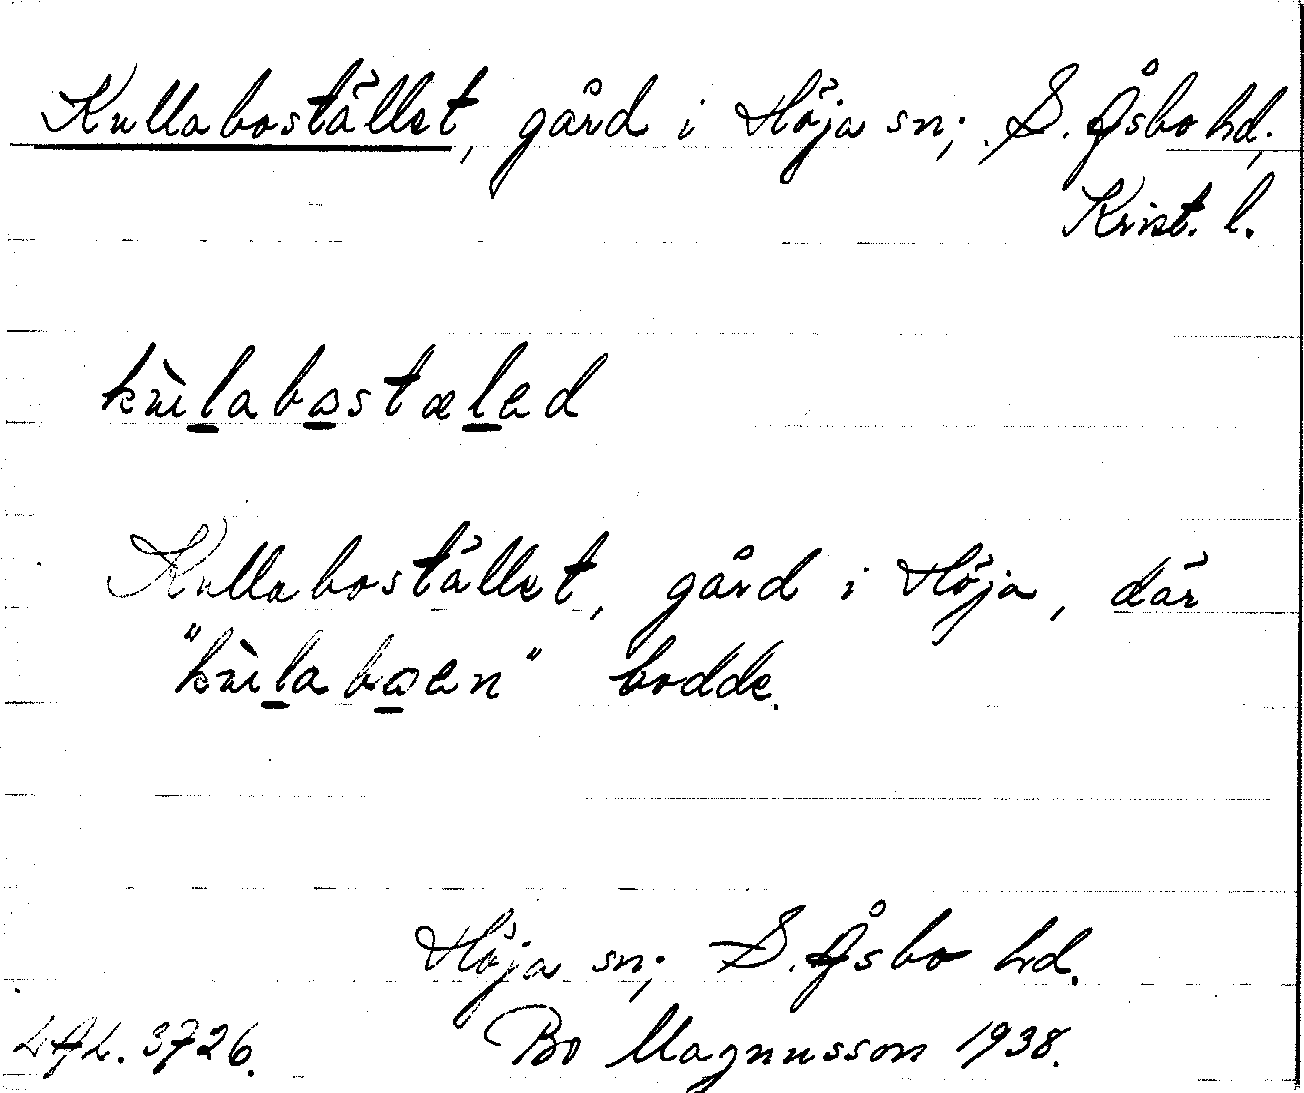 Kullabostället, gård i Höja sn; S. Åsbo hd.
Krist. l.
kùlabostæled
Kullabostället, gård i Höja, där
"kùlaboen" bodde.
Höja sn; S. Åsbo hd.
LAL. 3726. Bo Magnusson 1938.